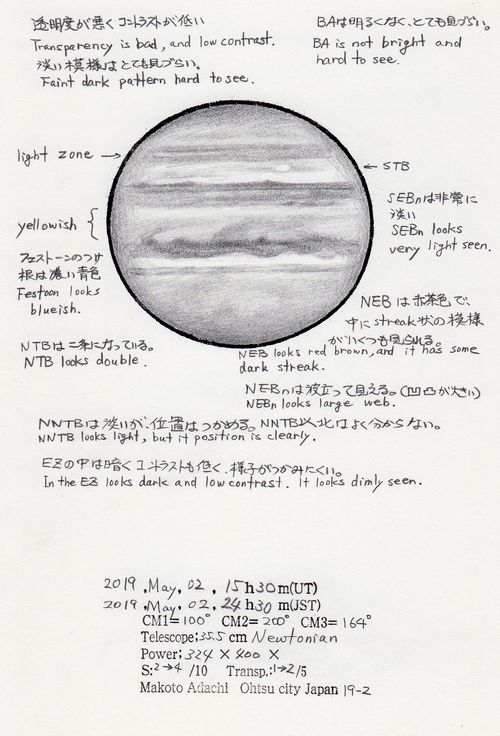 透明度が悪くコントラストが低い
Transparency is bad, and low contrast.
淡い模様はとても見づらい。
Faint dark pattern hard to see.
BAは明るくなく、とても見づらい。
BA is not bright and
hard to see.
light zone →
← STB
yellowish {
SEBnは非常に
淡い
SEBn looks
very light seen.
フェストーンのつけ
根は濃い青色
Festoon looks
blueish.
NEB は赤茶色で、
中に streak 状の模様
がいくつも見られる。
NEB looks red brown, and it has some
dark streak.
NTBは二条になっている。
NTB looks double.
NEBnは波立って見える。(凹凸が大きい)
NEBn looks large web.
NNTBは淡いが、位置はつかめる。NNTB以北はよく分からない。
NNTB looks light, but it position is clearly.
EZの中は暗くコントラストも低く、様子がつかみにくい。
In the EZ looks dark and low contrast. It looks dimly seen.
2019 ,May, 02 , 15h30m(UT)
2019 ,May, 02, 24h30 m(JST)
CM1=100° CM2=200° CM3=164°
Telescope;35.5 cm Newtonian
Power;324 × 400 ×
S:2→4 /10 Transp.:1→2/5
Makoto Adachi Ohtsu city Japan 19-2